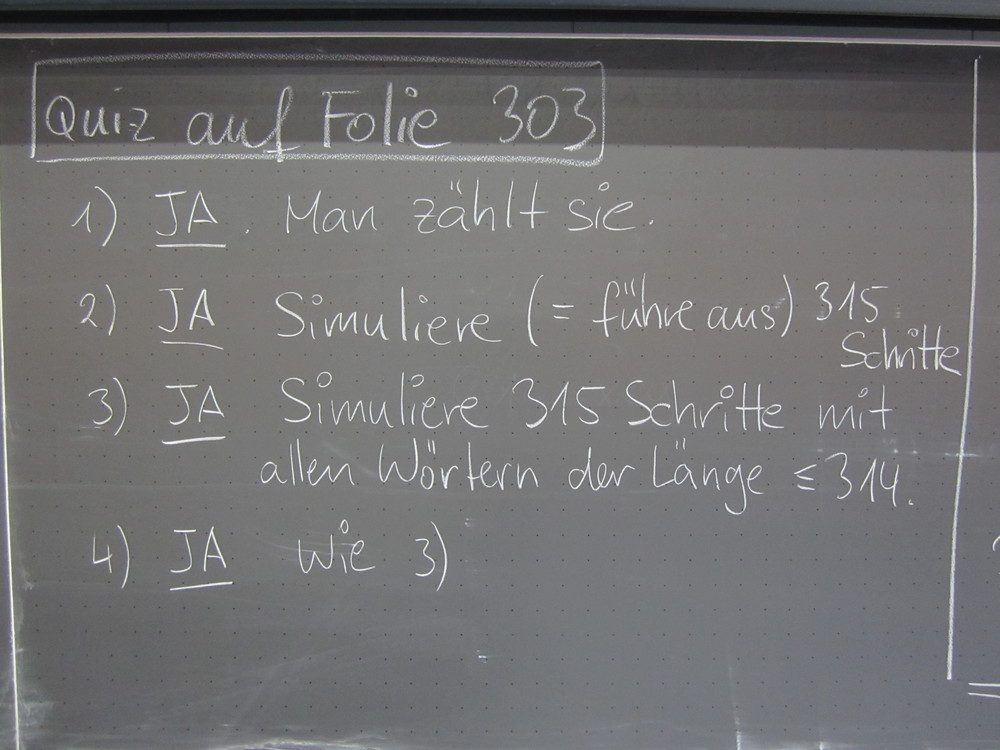 Quiz auf Folie 303
1) JA. Man zählt sie.
2) JA Simuliere (= führe aus) 315
Schritte
3) JA Simuliere 315 Schritte mit
allen Wörtern der Länge ≤ 314.
4) JA Wie 3)